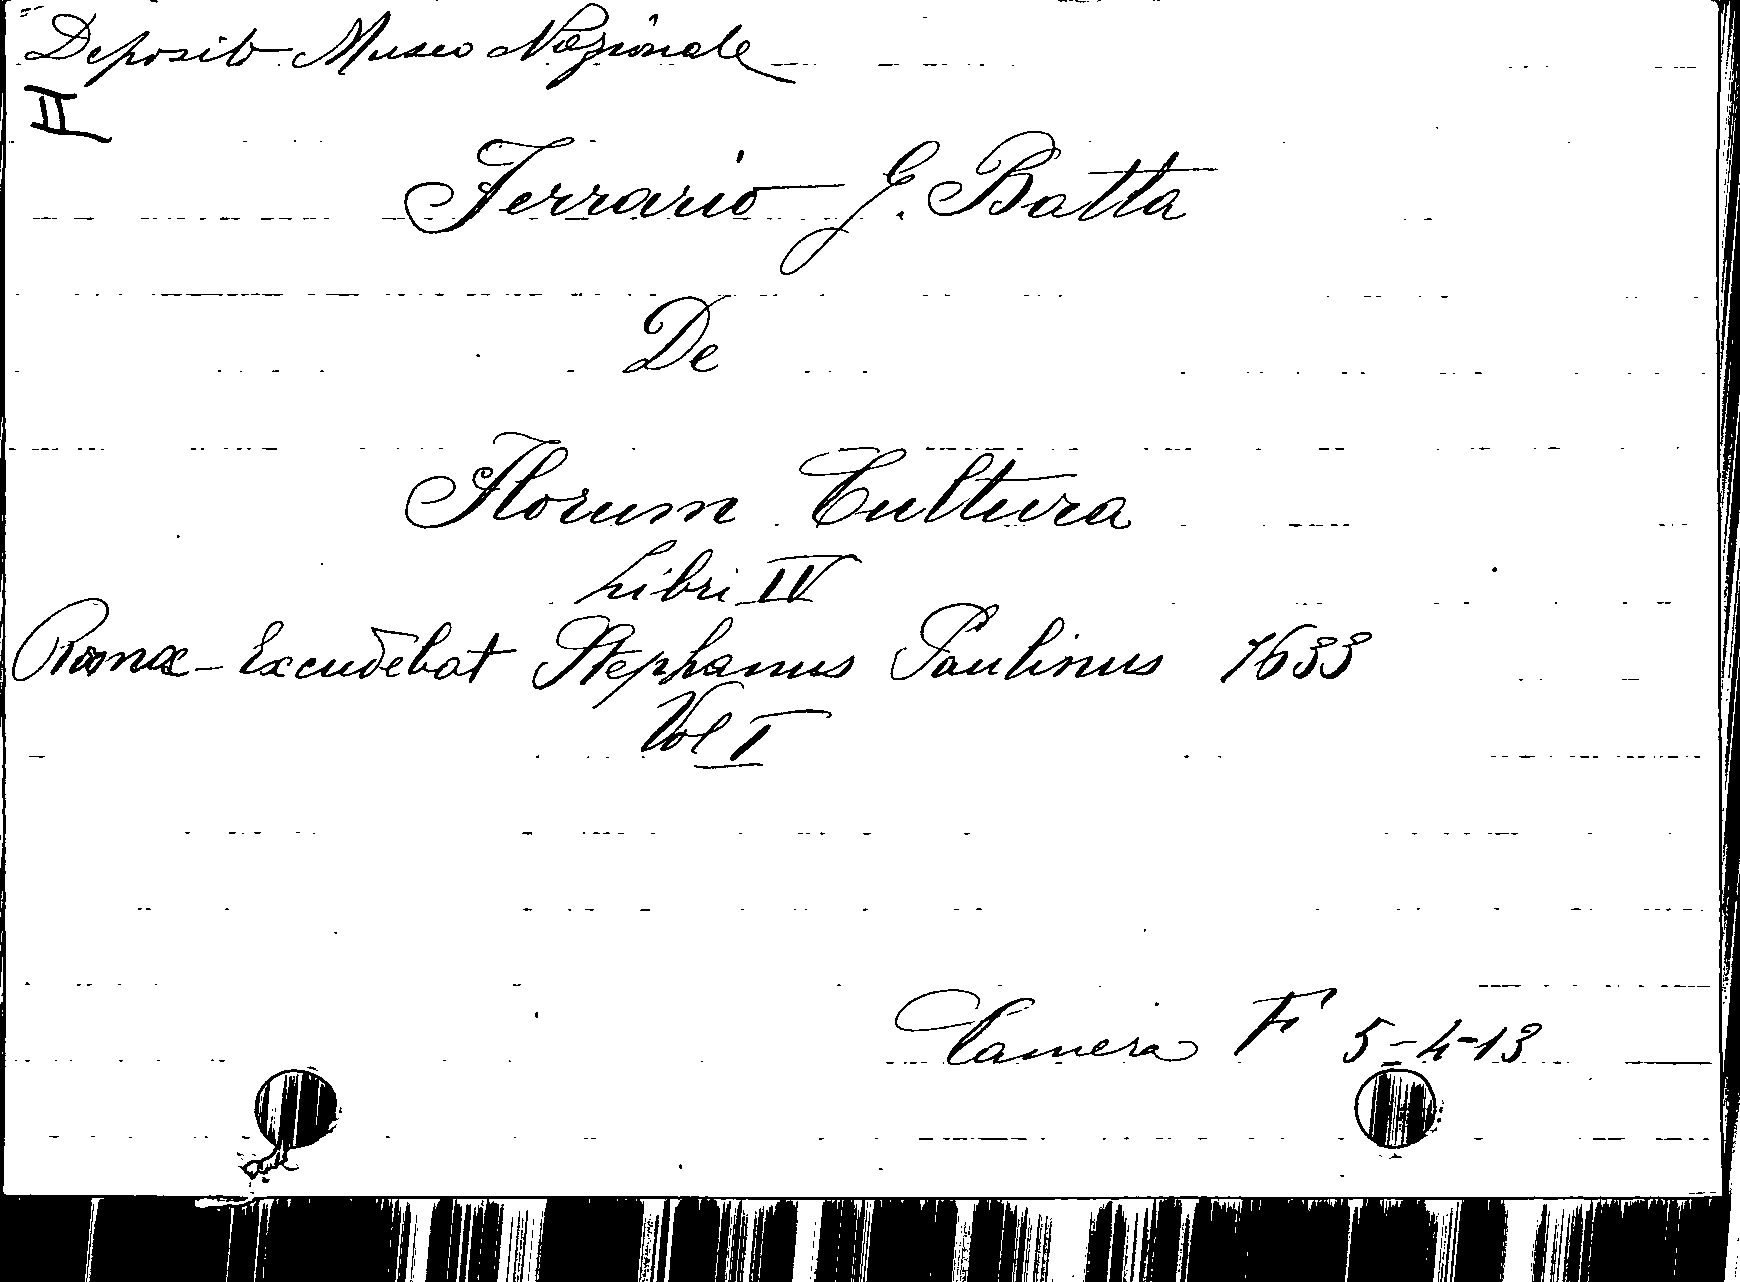 Deposito Museo Nazionale
II
Ferrario G. Batta
De
Florum Cultura
Libri IV
Romæ - Excudebat Stephanus Paulinus 1633
Vol I
Camera F 5-4-13